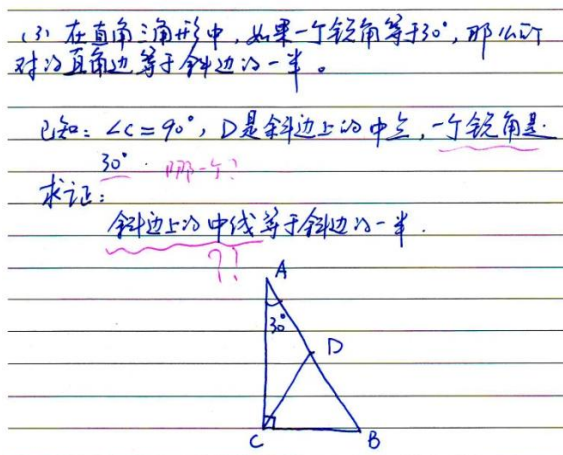 (3) 在直角三角形中,如果一个锐角等于30°,那么所
对的直角边等于斜边的一半。
已知:∠C=90°,D是斜边上的中点,一个锐角是
30°. 哪一个?
求证:
斜边上的中线等于斜边的一半.
??
A
30°
D
C
B